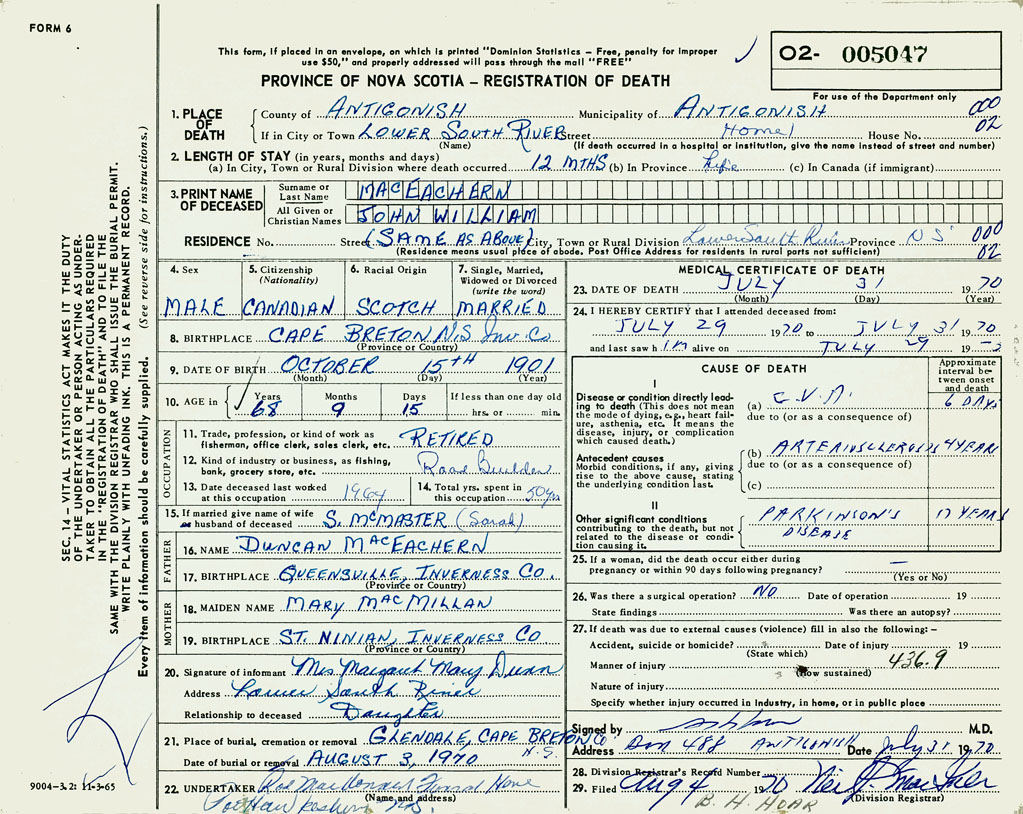 FORM 6
This form, if placed in an envelope, on which is printed "Dominion Statistics – Free, penalty for improper
use $50," and properly addressed will pass through the mail "FREE"
PROVINCE OF NOVA SCOTIA – REGISTRATION OF DEATH
O2- 005047
For use of the Department only
1. PLACE OF DEATH
County of ANTIGONISH Municipality of ANTIGONISH 000
If in City or Town LOWER SOUTH RIVER Street Home House No. 02
(Name) (If death occurred in a hospital or institution, give the name instead of street and number)
2. LENGTH OF STAY (in years, months and days)
(a) In City, Town or Rural Division where death occurred 12 MTHS (b) In Province Life (c) In Canada (if immigrant)
3. PRINT NAME OF DECEASED
Surname or Last Name MACEACHERN
All Given or Christian Names JOHN WILLIAM
RESIDENCE No. Street (SAME AS ABOVE) City, Town or Rural Division Lower South River Province NS 000
(Residence means usual place of abode. Post Office Address for residents in rural parts not sufficient) 02
4. Sex
MALE
5. Citizenship
(Nationality)
CANADIAN
6. Racial Origin
SCOTCH
7. Single, Married,
Widowed or Divorced
(write the word)
MARRIED
8. BIRTHPLACE CAPE BRETON N.S. Inv. Co
(Province or Country)
9. DATE OF BIRTH OCTOBER 15TH 1901
(Month) (Day) (Year)
10. AGE in Years Months Days If less than one day old
68 9 15 hrs. or min.
OCCUPATION
11. Trade, profession, or kind of work as
fisherman, office clerk, sales clerk, etc. RETIRED
12. Kind of industry or business, as fishing,
bank, grocery store, etc. Road Builder
13. Date deceased last worked
at this occupation 1964
14. Total yrs. spent in
this occupation 50 yrs
15. If married give name of wife
or husband of deceased S. MCMASTER (Sarah)
FATHER
16. NAME DUNCAN MACEACHERN
17. BIRTHPLACE QUEENSVILLE, INVERNESS CO.
(Province or Country)
MOTHER
18. MAIDEN NAME MARY MACMILLAN
19. BIRTHPLACE ST. NINIAN, INVERNESS CO
(Province or Country)
20. Signature of informant Mrs Margaret Mary Dunn
Address Lower South River
Relationship to deceased Daughter
21. Place of burial, cremation or removal GLENDALE, CAPE BRETON CO
N.S.
Date of burial or removal AUGUST 3, 1970
22. UNDERTAKER Rod MacDonald Funeral Home
(Name and address)
Port Hawkesbury N.S.
MEDICAL CERTIFICATE OF DEATH
23. DATE OF DEATH JULY 31 1970
(Month) (Day) (Year)
24. I HEREBY CERTIFY that I attended deceased from:
JULY 29 1970 to JULY 31 1970
and last saw him alive on JULY 29 19
CAUSE OF DEATH
Approximate
interval be-
tween onset
and death
I
Disease or condition directly lead-
ing to death (This does not mean
the mode of dying, e.g., heart fail-
ure, asthenia, etc. It means the
disease, injury, or complication
which caused death.)
(a) C.V.A. 6 DAYS
due to (or as a consequence of)
Antecedent causes
Morbid conditions, if any, giving
rise to the above cause, stating
the underlying condition last.
(b) ARTERIOSCLEROSIS 4 YEARS
due to (or as a consequence of)
(c)
II
Other significant conditions
contributing to the death, but not
related to the disease or condi-
tion causing it.
PARKINSON'S 17 YEARS
DISEASE
25. If a woman, did the death occur either during
pregnancy or within 90 days following pregnancy? –
(Yes or No)
26. Was there a surgical operation? NO Date of operation 19
State findings Was there an autopsy?
27. If death was due to external causes (violence) fill in also the following: –
Accident, suicide or homicide? Date of injury 19
(State which) 436.9
Manner of injury
(How sustained)
Nature of injury
Specify whether injury occurred in Industry, in home, or in public place
Signed by M.D.
Address Box 488 ANTIGONISH Date July 31 1970
28. Division Registrar's Record Number
29. Filed Aug 4 1970
(Division Registrar)
B. H. HOAR
SEC. 14 – VITAL STATISTICS ACT MAKES IT THE DUTY
OF THE UNDERTAKER OR PERSON ACTING AS UNDER-
TAKER TO OBTAIN ALL THE PARTICULARS REQUIRED
IN THE "REGISTRATION OF DEATH" AND TO FILE THE
SAME WITH THE DIVISION REGISTRAR WHO SHALL ISSUE THE BURIAL PERMIT.
WRITE PLAINLY WITH UNFADING INK. THIS IS A PERMANENT RECORD.
Every item of information should be carefully supplied. (See reverse side for instructions.)
9004-3.2: 11-3-65